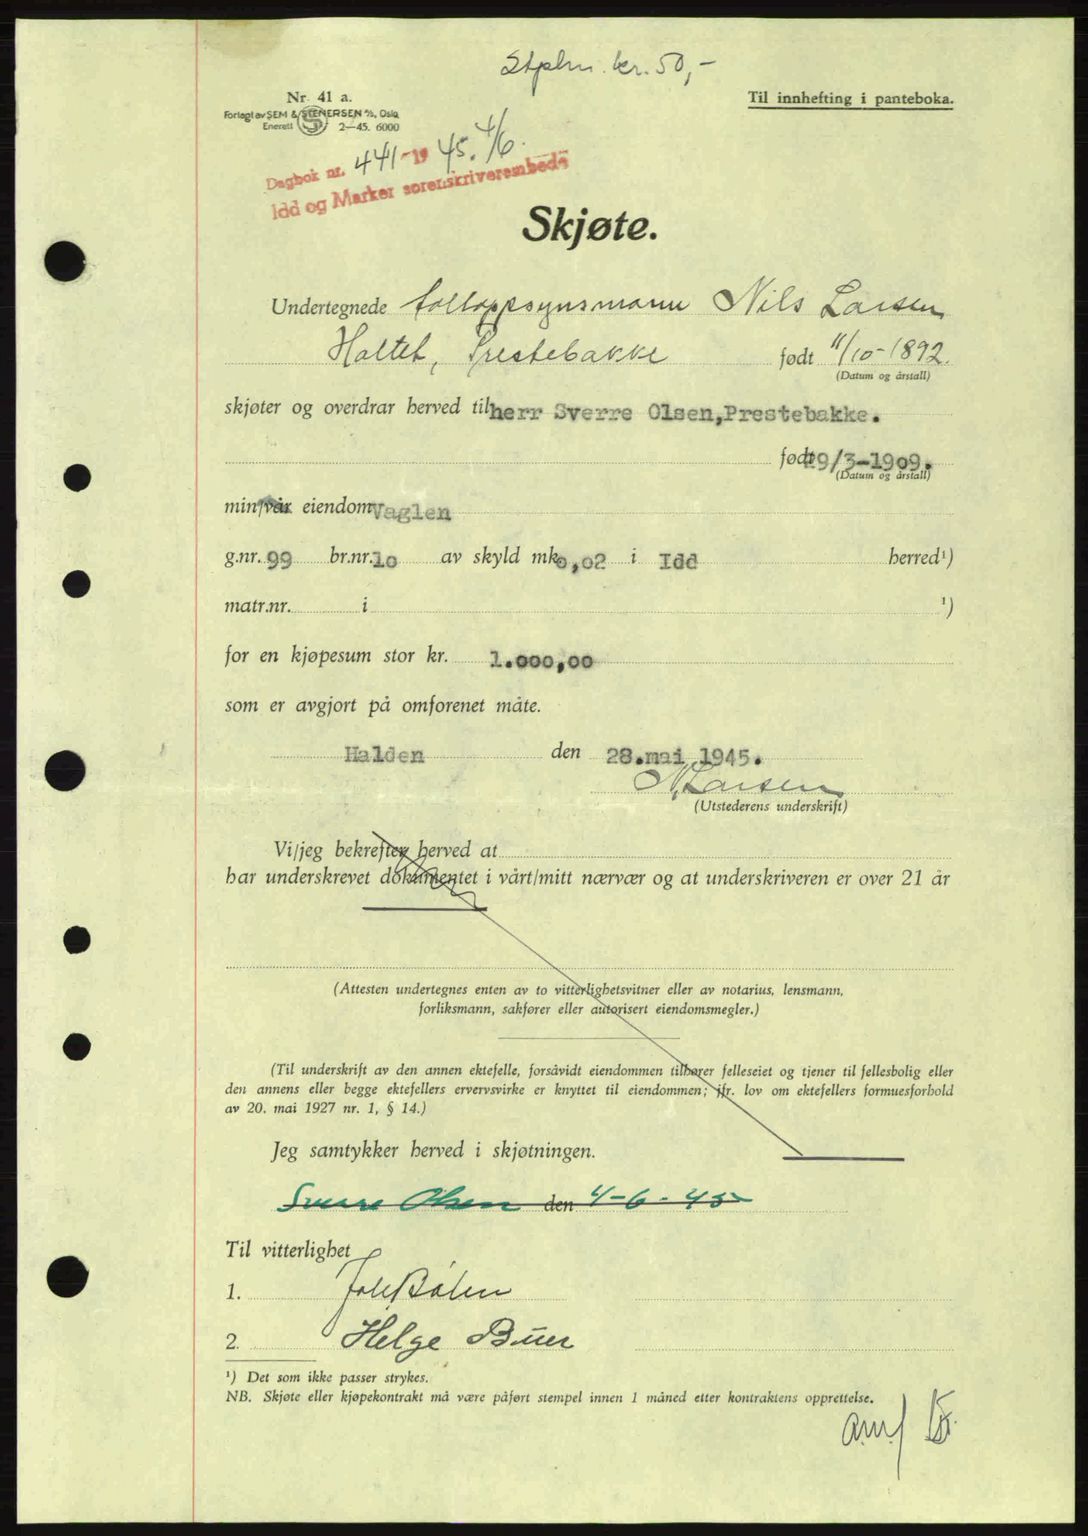 Stplm. kr. 50,-
Nr. 41 a.
Til innhefting i panteboka.
Forlagt av SEM & STENERSEN A/S, Oslo
Enerett 2—45. 6000
Dagbok nr. 441-19 45. 4/6.
Idd og Marker sorenskriverembede
Skjøte.
Undertegnede tolloppsynsmann Nils Larsen
Holtet, Prestebakke født 11/10-1892.
(Datum og årstall)
skjøter og overdrar herved til herr Sverre Olsen, Prestebakke.
født 29/3-1909.
(Datum og årstall)
min/vår eiendom Vaglen
g.nr. 99 br.nr. 10 av skyld mk. 0,02 i Idd herred¹)
matr.nr. i ¹)
for en kjøpesum stor kr. 1.000,00
som er avgjort på omforenet måte.
Halden den 28.mai 1945.
N. Larsen
(Utstederens underskrift)
Vi/jeg bekrefter herved at
har underskrevet dokumentet i vårt/mitt nærvær og at underskriveren er over 21 år
(Attesten undertegnes enten av to vitterlighetsvitner eller av notarius, lensmann,
forliksmann, sakfører eller autorisert eiendomsmegler.)
(Til underskrift av den annen ektefelle, forsåvidt eiendommen tilhører felleseiet og tjener til fellesbolig eller
den annens eller begge ektefellers ervervsvirke er knyttet til eiendommen; jfr. lov om ektefellers formuesforhold
av 20. mai 1927 nr. 1, § 14.)
Jeg samtykker herved i skjøtningen.
Sverre Olsen den 4-6-45
Til vitterlighet
1.
2. Helge Buer
¹) Det som ikke passer strykes.
NB. Skjøte eller kjøpekontrakt må være påført stempel innen 1 måned etter kontraktens opprettelse.